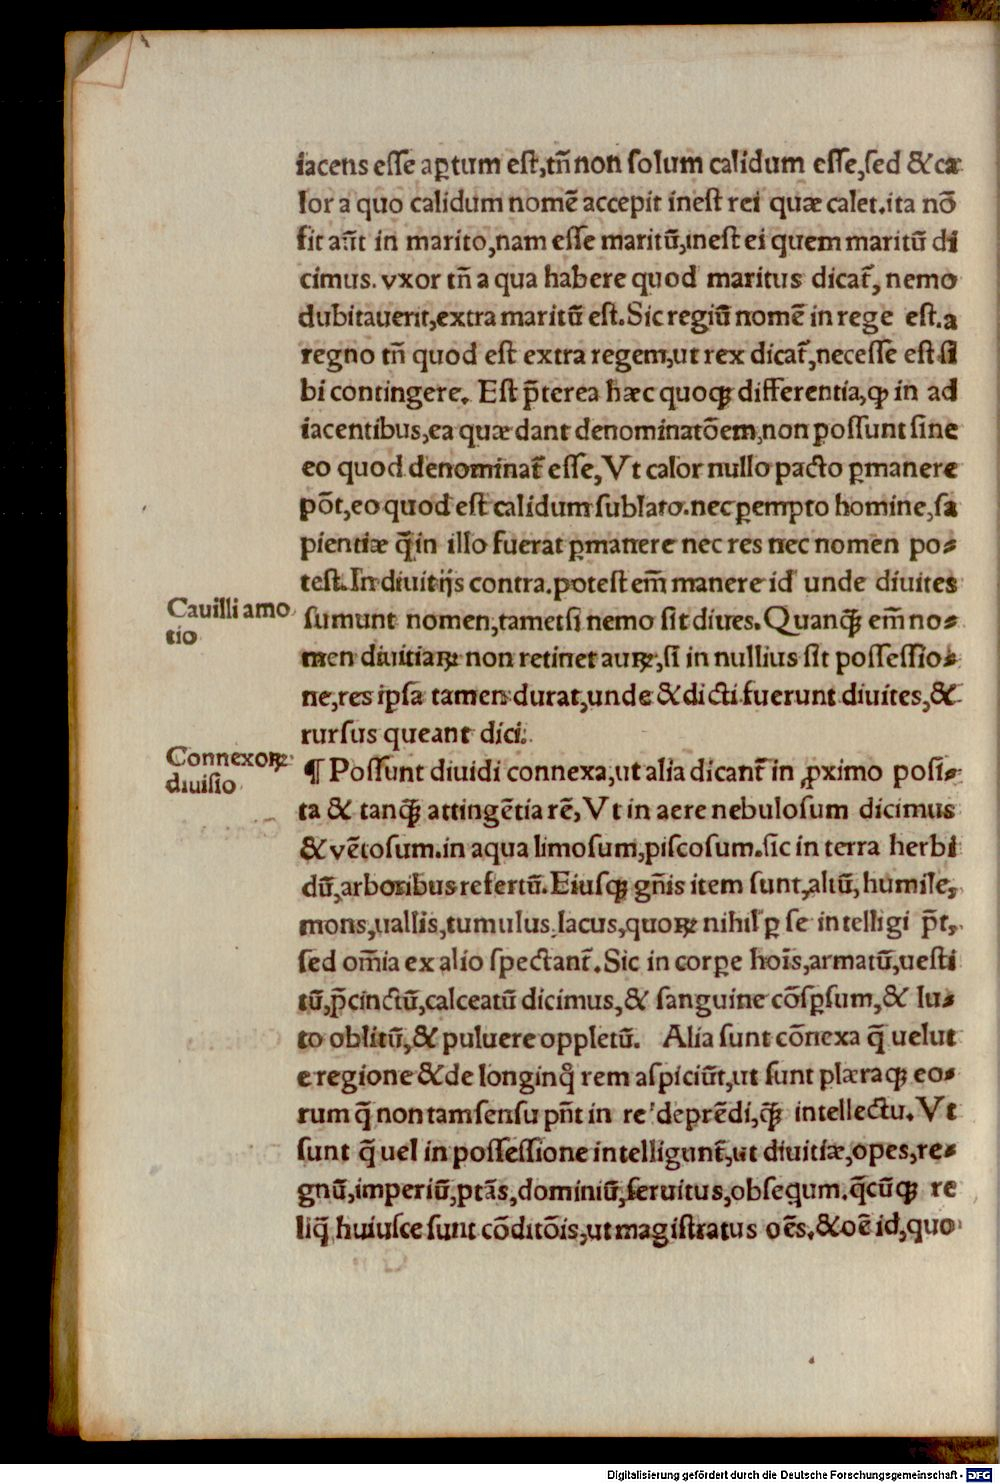 iacens esse aꝑtum est,tñ non solum calidum esse,sed & ca
lor a quo calidum nomẽ accepit inest rei quæ calet.ita nõ
fit aũt in marito,nam esse maritũ,inest ei quem maritũ di
cimus. vxor tñ a qua habere quod maritus dicat᷑, nemo
dubitauerit,extra maritũ est.Sic regiũ nomẽ in rege est.a
regno tñ quod est extra regem,ut rex dicat᷑,necesse est si
bi contingere. Est p̃terea hæc quoqꝫ differentia,ꝙ in ad
iacentibus,ea quæ dant denominatõem,non possunt sine
eo quod denominat᷑ esse, Vt calor nullo pacto ꝑmanere
põt,eo quod est calidum sublato.nec ꝑempto homine,sa
pientiæ q̃ in illo fuerat ꝑmanere nec res nec nomen po-
test.In diuitijs contra.potest em̃ manere id unde diuites
Cauilli amo
tio
sumunt nomen,tametsi nemo sit diues.Quanqꝫ̃ em̃ no-
men diuitiaꝝ non retinet auꝝ,si in nullius sit possessio-
ne,res ipsa tamen durat,unde & dicti fuerunt diuites,&
rursus queant dici.
Connexoꝝ
diuisio
¶ Possunt diuidi connexa,ut alia dicant᷑ in ꝓximo posi-
ta & tanqꝫ̃ attingẽtia rẽ, Vt in aere nebulosum dicimus
& vẽtosum.in aqua limosum,piscosum.sic in terra herbi
dũ,arboribus refertũ.Eiusqꝫ gñis item sunt,altũ,humile,
mons,uallis,tumulus.lacus,quoꝝ nihil ꝑ se intelligi p̃t,
sed om̃ia ex alio spectant᷑.Sic in corpe hoĩs,armatũ,uesti
tũ,p̃cinctũ,calceatũ dicimus,& sanguine cõsꝑsum,& lu-
to oblitũ,& puluere oppletũ. Alia sunt cõnexa q̃ uelut
e regione & de longinq̊ rem aspiciũt,ut sunt plæraqꝫ eo-
rum q̃ non tam sensu pñt in re deprẽdi,qꝫ̃ intellectu.Vt
sunt q̃ uel in possessione intelligunt᷑,ut diuitiæ,opes,re-
gnũ,imperiũ,ptãs,dominiũ,seruitus,obsequm.q̃cũqꝫ re
liq̃ huiusce sunt cõditõis,ut magistratus oẽs.& oẽ id,quo
Digitalisierung gefördert durch die Deutsche Forschungsgemeinschaft - DFG